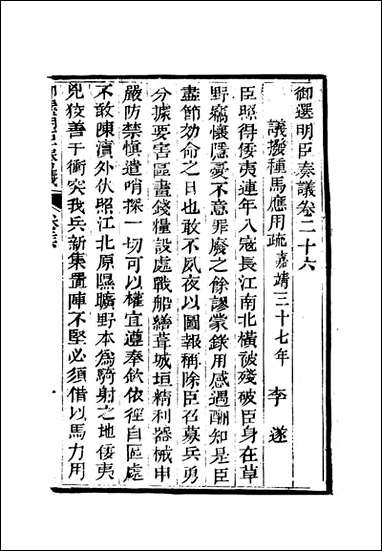 御選明臣奏議卷二十六
議撥種馬應用疏嘉靖三十七年 李遂
臣照得倭夷連年入寇長江南北橫被殘破臣身在草
野竊懷隱憂不意罪廢之餘謬蒙錄用感遇酬知是臣
盡節効命之日也敢不夙夜以圖報稱除臣召募兵勇
分據要害區畫錢糧設處戰船繕葺城垣精利器械申
嚴防禁愼遣哨探一切可以權宜遵奉欽依徑自區處
不敢陳瀆外伏照江北原隰曠野本為騎射之地倭夷
兇狡善于衝突我兵新集置陣不堅必須借以馬力用